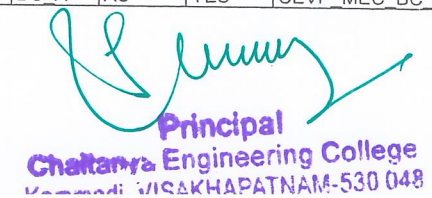 Principal
Chaitanya Engineering College
Kommadi, VISAKHAPATNAM-530 048